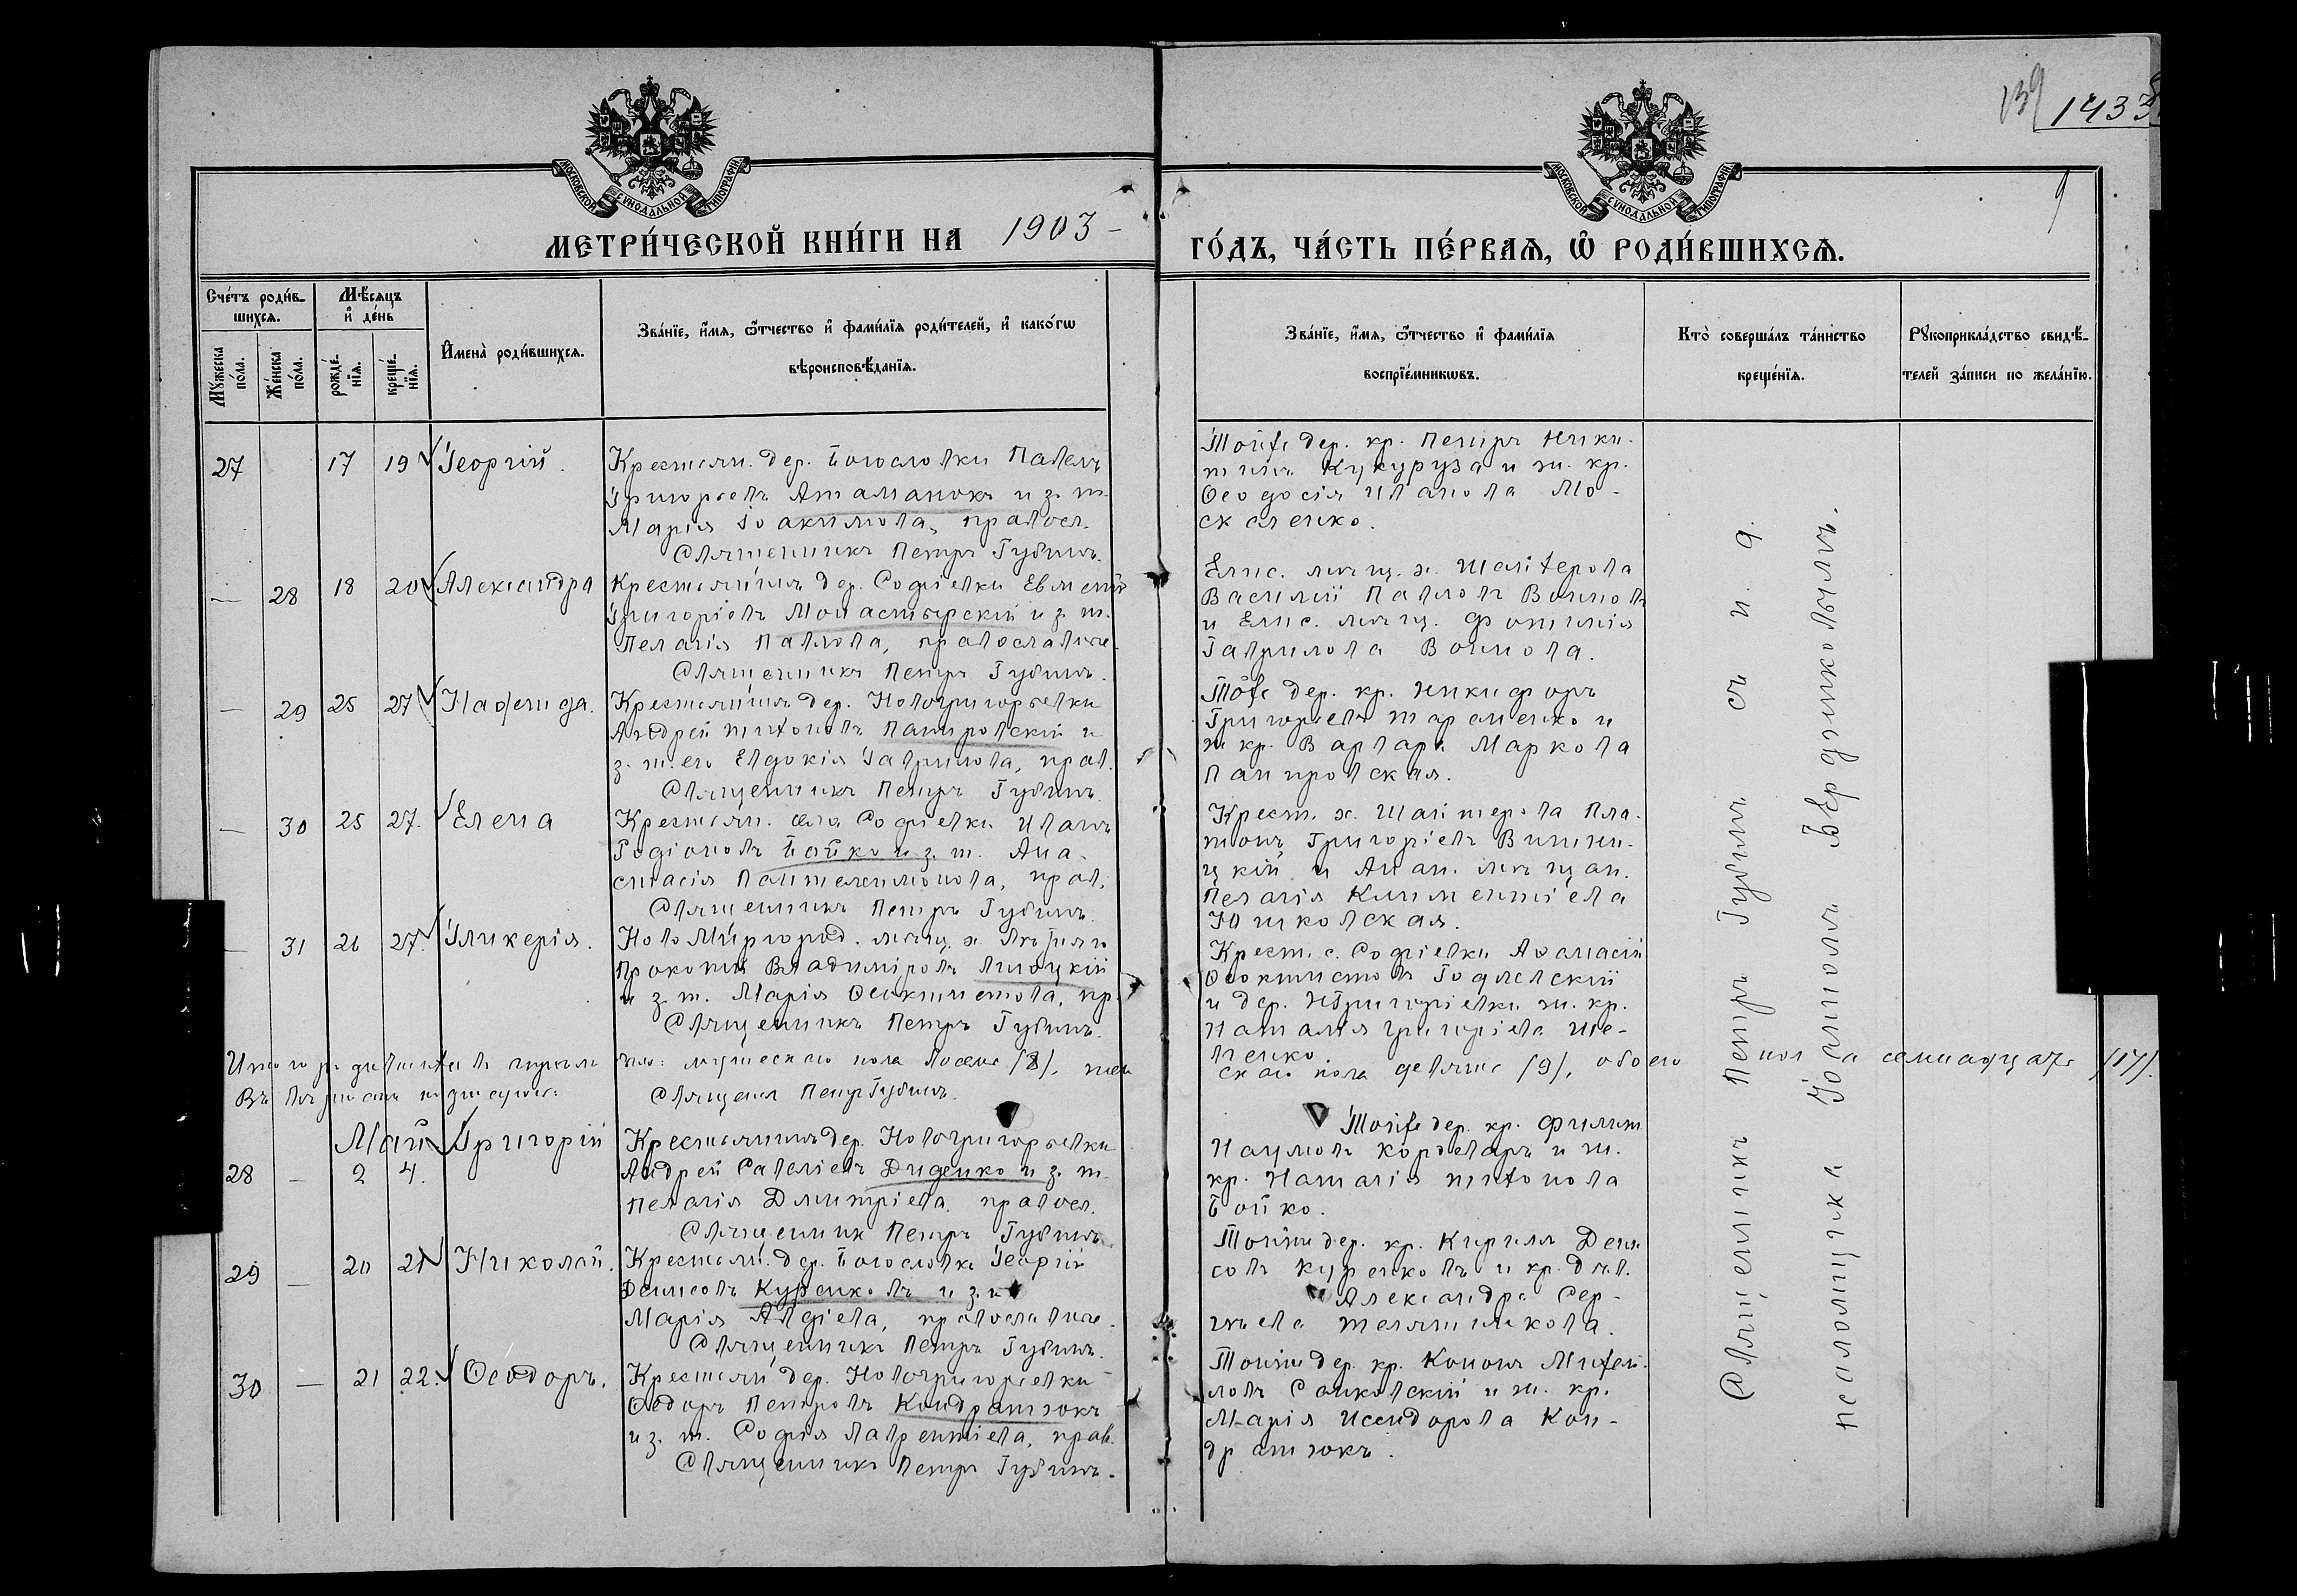 139 1433
9
МОСКОВСКОЙ СѴНОДАЛЬНОЙ ТИПОГРАФІИ
МОСКОВСКОЙ СѴНОДАЛЬНОЙ ТИПОГРАФІИ
МЕТРИ́ЧЕСКОЙ КНИ́ГИ НА 1903 –
ГО́ДЪ, ЧА́СТЬ ПЕ́РВАѦ, Ѽ РОДИ́ВШИХСѦ.
Сче́тъ роди́в-
шихсѧ.
Мꙋ́жеска по́ла.
Же́нска по́ла.
Мѣ́сѧцъ
и҆ де́нь
рожде́-
нїѧ.
креще́-
нїѧ.
И҆мена̀ роди́вшихсѧ.
Зва́нїе, и҆́мѧ, ѻ҆́тчество и҆ фами́лїѧ роди́телей, и҆ како́гѡ
вѣроисповѣ́данїѧ.
Зва́нїе, и҆́мѧ, ѻ҆́тчество и҆ фами́лїѧ
воспрїе́мникѡвъ.
Кто̀ соверша́лъ та́инство
креще́нїѧ.
Рꙋкоприкла́дство свидѣ́-
телей за́писи по жела́нїю.
27 17 19 Георгій.
Крестьян. дер. Богословки Павелъ
Григорьевъ Атаманюкъ и з. ж.
Марія Іоакимова, правосл.
Священникъ Петръ Губинъ.
Тойже дер. кр. Петръ Ники-
тинъ Кукуруза и ж. кр.
Ѳеодосія Иванова Мо-
скаленко.
— 28 18 20 Александра
Крестьянинъ дер. Софіевки Евменій
Григоріевъ Монастырскій и з. ж.
Пелагія Павлова, православные
Священникъ Петръ Губинъ.
Елис. мѣщ. х. Шайтерова
Василій Павловъ Воиновъ
и Елис. мѣщ. Фотинія
Гаврилова Воинова.
— 29 25 27 Надежда.
Крестьянинъ дер. Новогригорьевки
Андрей Титовъ Папировскій и
з. ж. его Евдокія Гаврилова, прав.
Священникъ Петръ Губинъ.
Тойже дер. кр. Никифоръ
Григорьевъ Тараненко и
ж. кр. Варвара Маркова
Папировская.
— 30 25 27. Елена
Крестьян. села Софіевки Иванъ
Родіоновъ Бойко и з. ж. Ана-
стасія Пантелеимонова, прав.
Священникъ Петръ Губинъ.
Крест. х. Шайтерова Пла-
тонъ Григоріевъ Винни-
цкій и Анан. мѣщан.
Пелагія Климентіева
Юшковская.
— 31 26 27. Гликерія.
НовоМиргород. мѣщ. х.
Прокопій Владиміровъ Лисоцкій
и з. ж. Марія Ѳеоктистова, пр.
Священникъ Петръ Губинъ.
Крест. с. Софіевки Аѳанасій
Ѳеоктистовъ
и дер. НГригоріевки ж. кр.
Наталія Григоріева Ше-
вченко.
Итого родившихся въ апрѣлѣ было: мужескаго пола восемь /8/, жен
скаго пола девять /9/, обоего пола семнадцать /17/.
Священ Петръ Губинъ.
Май
28 — 2 4. Григорій
Крестьянинъ дер. Новогригорьевки
Андрей Савеліевъ Диденко и з. ж.
Пелагія Димитріева, правосл.
Священник Петръ Губинъ.
Тойже дер. кр. Филип
Наумовъ и ж.
кр. Наталія Титова
Бойко.
29 — 20 21 Николай.
Крестьян. дер. Богословки Георгій
Денисовъ Куренковъ и з. ж
Марія Авдіева, православные.
Священникъ Петръ Губинъ.
Тойже дер. кр. Кириллъ Дени
совъ Куренковъ и кр. дѣв.
Александра Сер-
гѣева Телятникова.
30 — 21 22. Ѳеодоръ.
Крестьян дер. Новогригорьевки
Ѳедоръ Петровъ Кондратюкъ
и з. ж. Софія Лаврентіева, прав.
Священникъ Петръ Губинъ.
Тойже дер. кр. Кононъ Михай-
ловъ Санковскій и ж. кр.
Марія Исидорова Кон-
дратюкъ.
Священникъ Петръ Губинъ съ и. д.
псаломщика Іоанномъ Бердниковымъ.